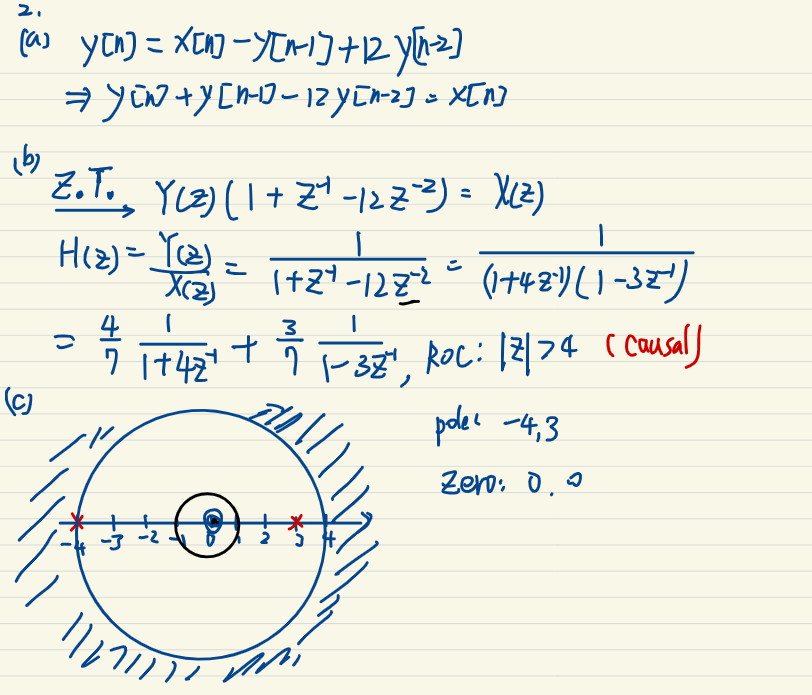 2.
(a) y[n] = x[n] - y[n-1] + 12 y[n-2]
⇒ y[n] + y[n-1] - 12y[n-2] = x[n]
(b) Z.T. → Y(z) (1 + z⁻¹ - 12z⁻²) = X(z)
H(z) = Y(z)/X(z) = 1/(1+z⁻¹-12z⁻²) = 1/((1+4z⁻¹)(1-3z⁻¹))
= 4/7 1/(1+4z⁻¹) + 3/7 1/(1-3z⁻¹), ROC: |z| > 4 (causal)
(c)
pole: -4, 3
zero: 0, 0
-4 -3 -2 -1 0 1 2 3 4